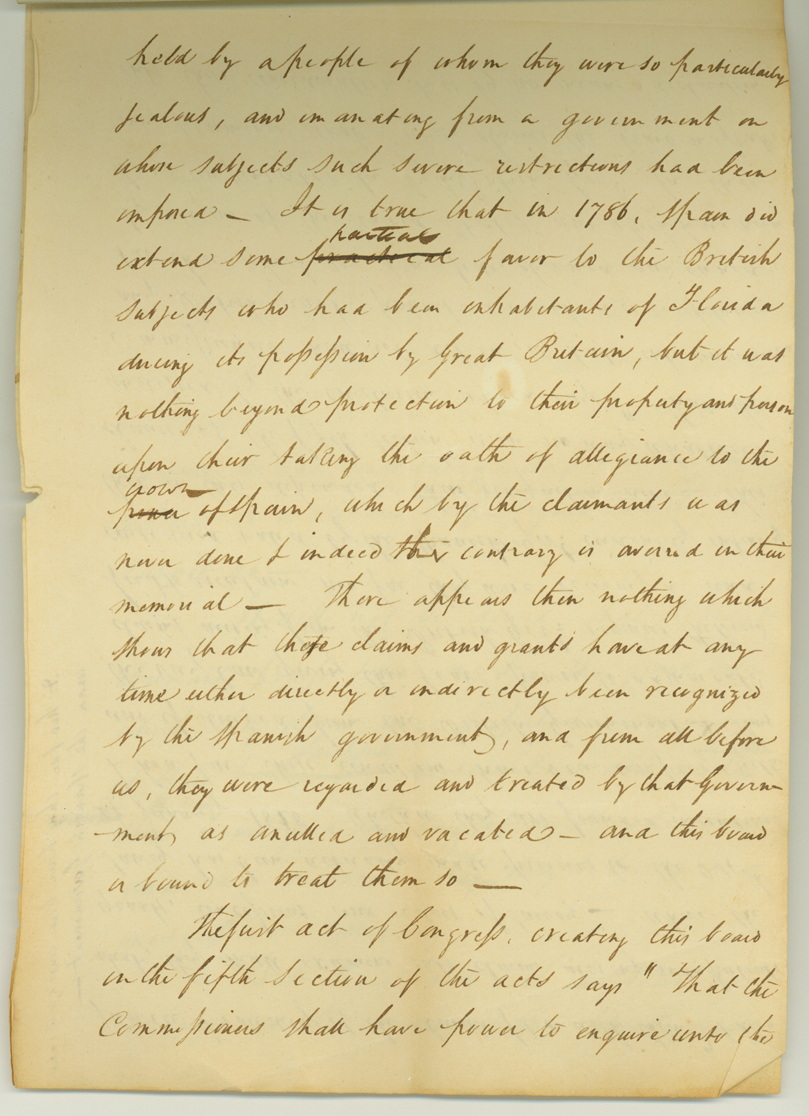 held by a people of whom they were so particularly
jealous, and emanating from a government on
whose subjects such severe restrictions had been
imposed — It is true that in 1786, Spain did
partial
extend some practical favor to the British
subjects who had been inhabitants of Florida
during its possession by Great Britain, but it was
nothing beyond protection to their property and person
upon their taking the oath of allegiance to the
crown
power of Spain, which by the claimants was
never done & indeed the contrary is averred in their
memorial — There appears then nothing which
shows that these claims and grants have at any
time either directly or indirectly been recognized
by the Spanish government, and from all before
us, they were regarded and treated by that Govern-
-ment, as anulled and vacated — and this board
is bound to treat them so —
The first act of Congress, creating this board
in the fifth section of the acts says " That the
Commissioners shall have power to enquire into the